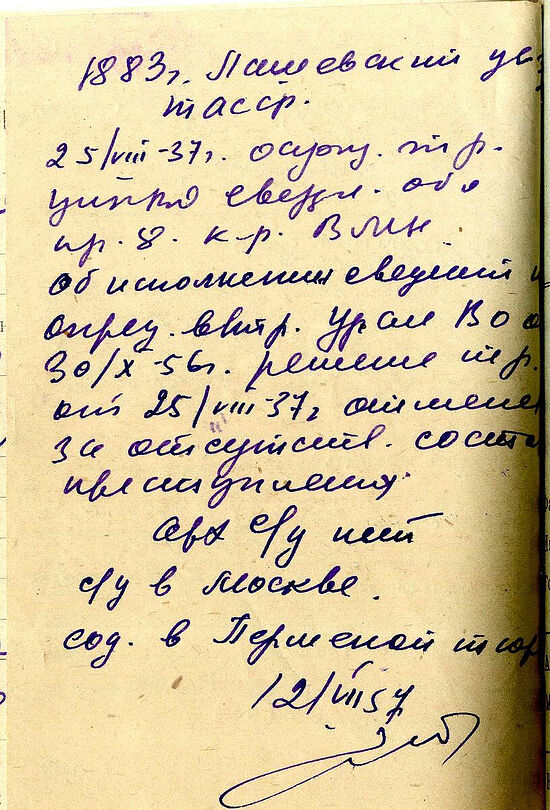 1883г. Лаишевский у
ТАССР.
25/VIII-37г. осужд. тр.
УНКВД Свердл. обл
пр. 8. к-р. ВМН
об исполнении сведений н
опред. в тр. Урал ВО о
30/X-56г. решение тр.
от 25/VIII-37г отменен
за отсутств. соста
преступления
арх с/у нет
с/у в Москве.
сод. в Пермской тюр
12/VII 57